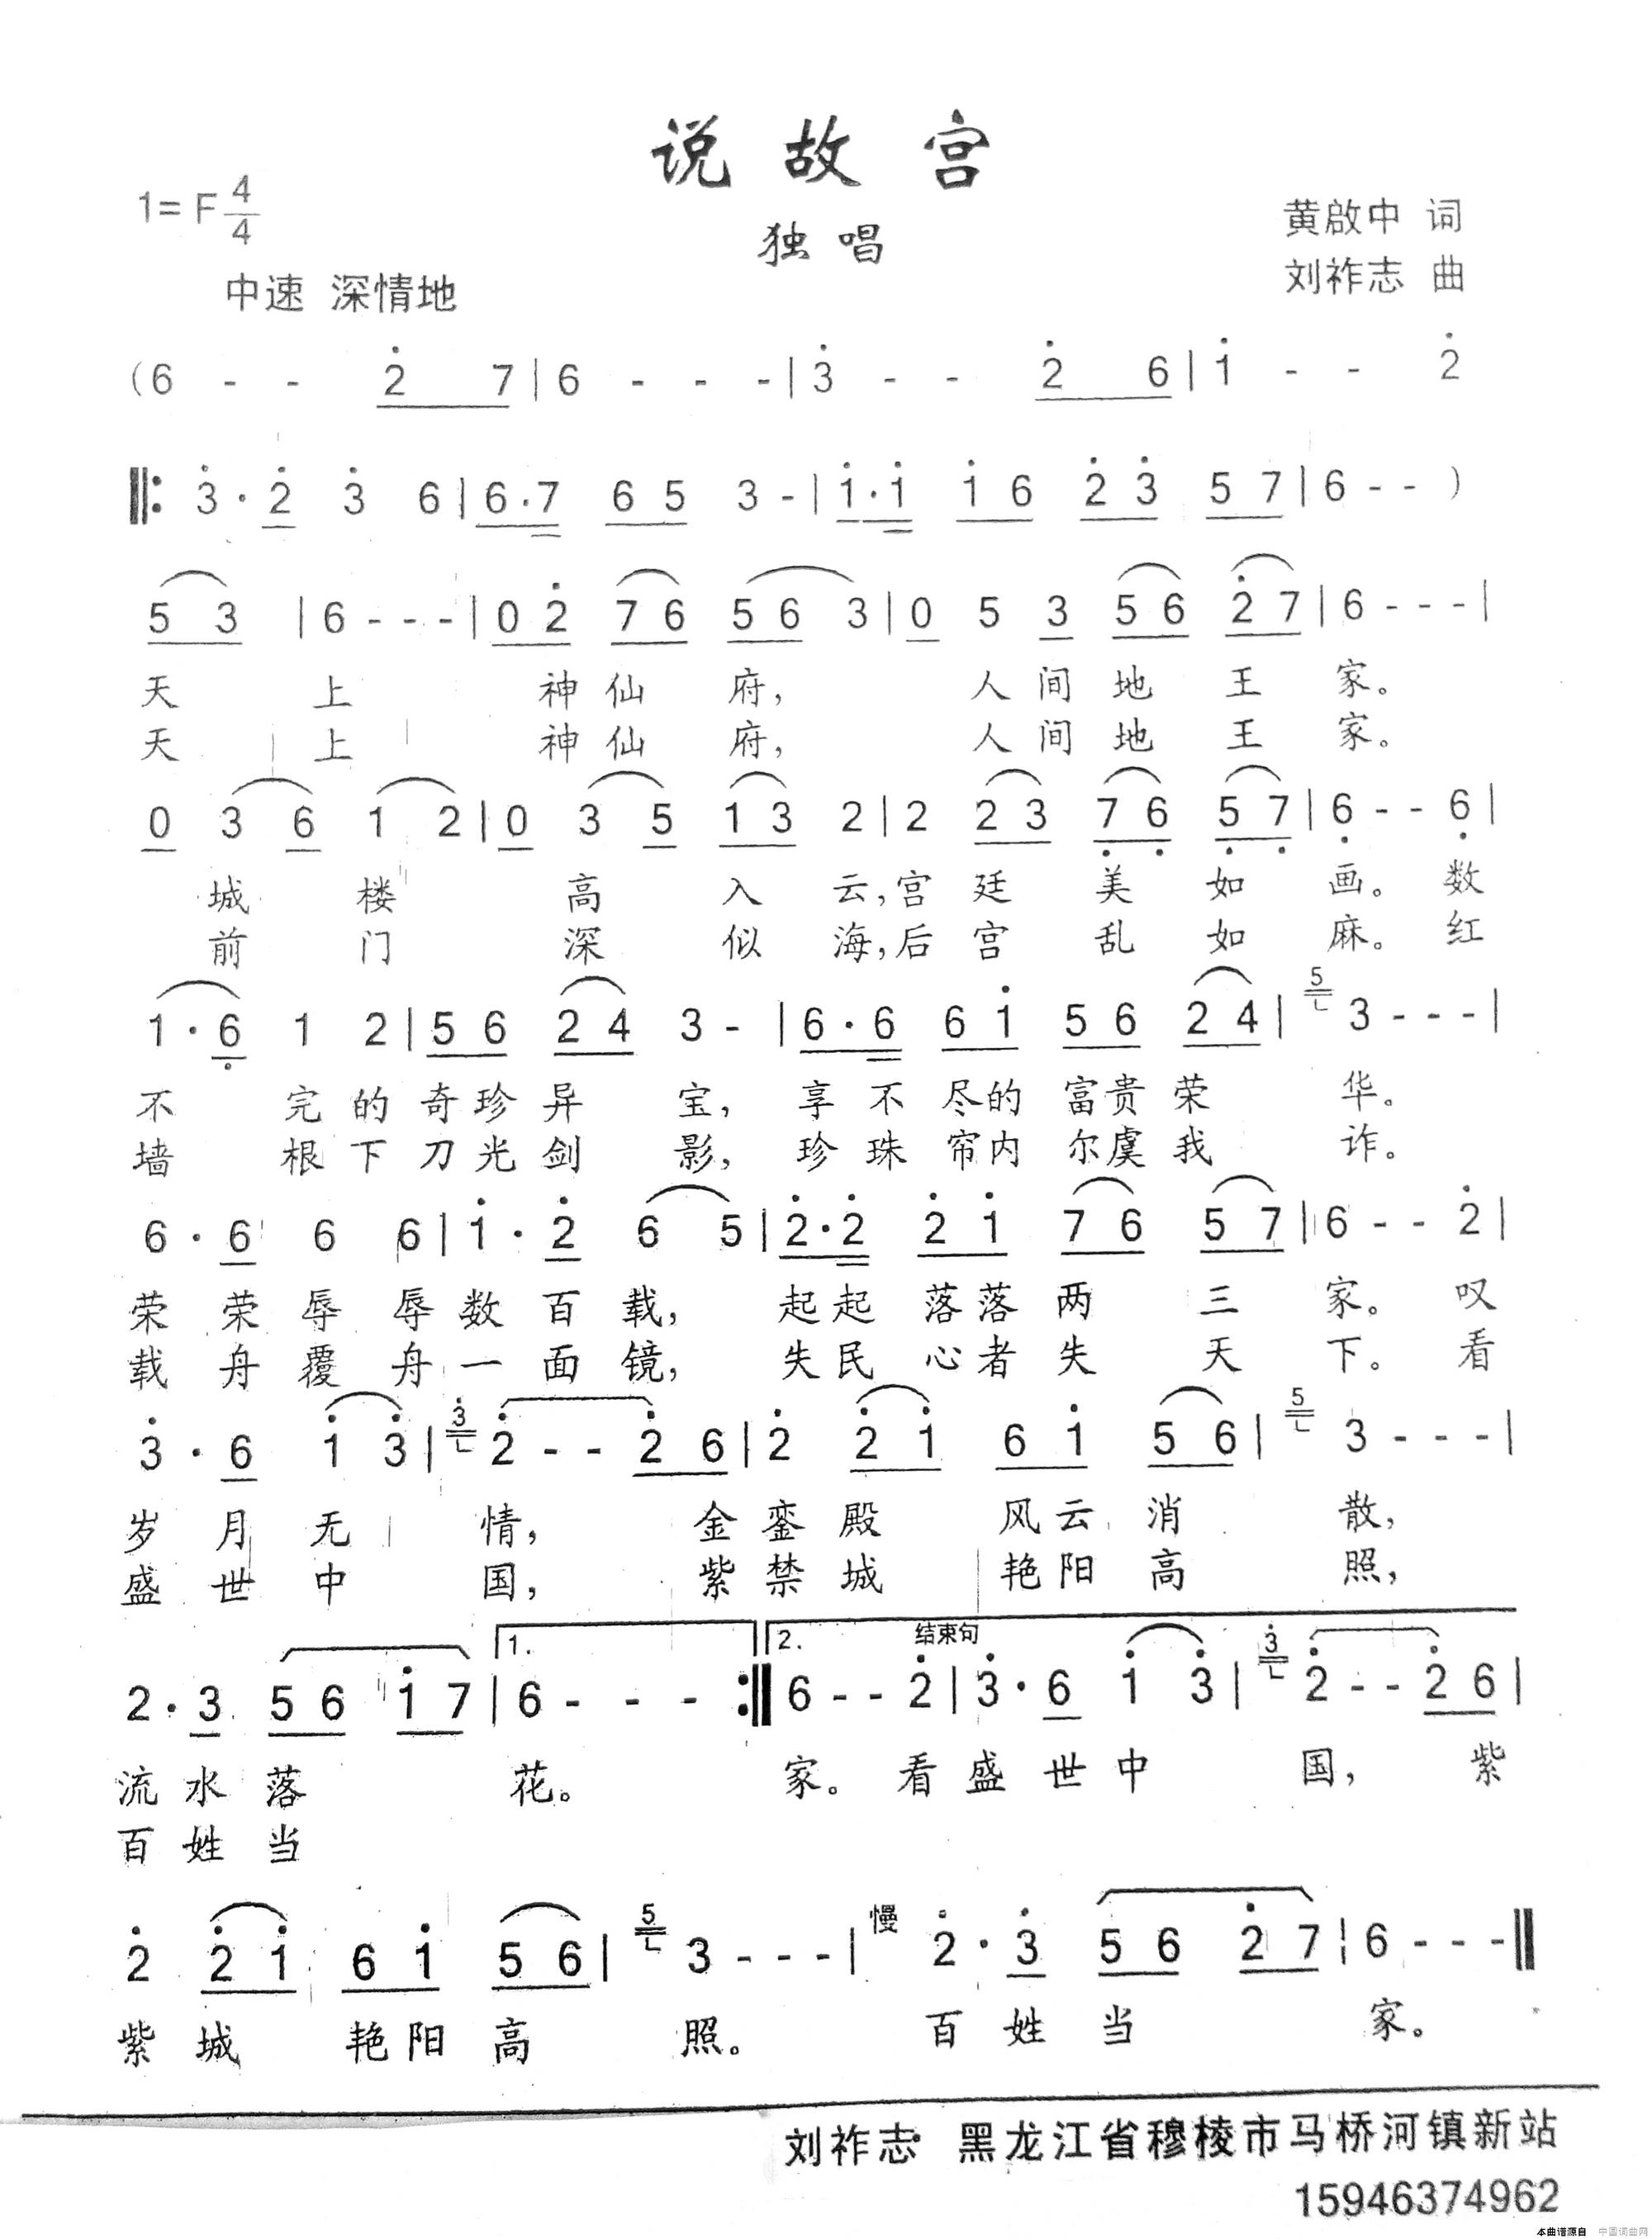 说故宫
1=F 4/4
独唱
黄啟中 词
中速 深情地
刘祚志 曲
(6 - - 2̇ 7 | 6 - - - | 3̇ - - 2̇ 6 | 1̇ - - 2̇
‖: 3̇ · 2̇ 3̇ 6 | 6 · 7 6 5 3 - | 1̇ · 1̇ 1̇ 6 2̇ 3̇ 5 7 | 6 - - )
5 3 | 6 - - - | 0 2̇ 7 6 5 6 3 | 0 5 3 5 6 2̇ 7 | 6 - - - |
天 上 神仙 府, 人间地 王 家。
天 上 神仙 府, 人间地 王 家。
0 3 6 1 2 | 0 3 5 1 3 2 | 2 2 3 7̣ 6̣ 5̣ 7̣ | 6̣ - - 6̣ |
城 楼 高 入 云,宫 廷 美 如 画。 数
前 门 深 似 海,后 宫 乱 如 麻。 红
1 · 6̣ 1 2 | 5 6 2 4 3 - | 6 · 6 6 1̇ 5 6 2 4 | 5 3 - - - |
不 完 的 奇珍异 宝, 享 不 尽的 富贵荣 华。
墙 根 下 刀光剑 影, 珍 珠 帘内 尔虞我 诈。
6 · 6 6 6 | 1̇ · 2̇ 6 5 | 2̇ · 2̇ 2̇ 1̇ 7 6 5 7 | 6 - - 2̇ |
荣 荣 辱 辱 数 百 载, 起起 落落 两 三 家。 叹
载 舟 覆 舟 一 面 镜, 失民 心者 失 天 下。 看
3̇ · 6 1̇ 3̇ | 3̇ 2̇ - - 2̇ 6 | 2̇ 2̇ 1̇ 6 1̇ 5 6 | 5 3 - - - |
岁 月 无 情, 金 銮 殿 风云 消 散,
盛 世 中 国, 紫 禁 城 艳阳 高 照,
1. 2. 结束句
2 · 3 5 6 1̇ 7 | 6 - - - :‖ 6 - - 2̇ | 3̇ · 6 1̇ 3̇ | 3̇ 2̇ - - 2̇ 6 |
流 水 落 花。 家。 看 盛 世 中 国, 紫
百 姓 当
2̇ 2̇ 1̇ 6 1̇ 5 6 | 5 3 - - - | 慢 2̇ · 3̇ 5 6 2̇ 7 | 6 - - - ‖
紫 城 艳阳 高 照。 百 姓 当 家。
刘祚志 黑龙江省穆棱市马桥河镇新站
15946374962
本曲谱源自 中国词曲网